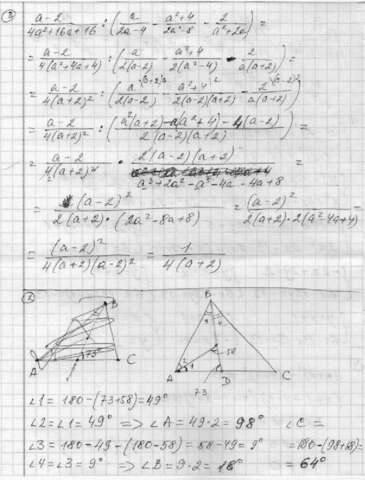 ③ (a-2)/(4a²+16a+16) : (a/(2a-4) - (a²+4)/(2a²-8) - 2/(a²+2a)) =
= (a-2)/(4(a²+4a+4)) : (a/(2(a-2)) - (a²+4)/(2(a²-4)) - 2/(a(a+2))) =
= (a-2)/(4(a+2)²) : (a/(2(a-2)) - (a²+4)/(2(a-2)(a+2)) - 2/(a(a+2))) =
= (a-2)/(4(a+2)²) : ((a²(a+2) - a(a²+4) - 4(a-2))/(2(a-2)(a+2))) =
= (a-2)/(4(a+2)²) · 2(a-2)(a+2)/(a³+2a²-a³-4a-4a+8) =
= (a-2)²/(2(a+2)·(2a²-8a+8)) = (a-2)²/(2(a+2)·2(a²-4a+4)) =
= (a-2)²/(4(a+2)(a-2)²) = 1/(4(a+2))
B
73°
A
C
B
3
4
58
2
1
A
D
C
73
∠1 = 180-(73+58)=49°
∠2=∠1=49° => ∠A=49·2=98° ∠C=
∠3=180-49-(180-58)=58-49=9° =180-(98+18)=
∠4=∠3=9° => ∠B=9·2=18° =64°